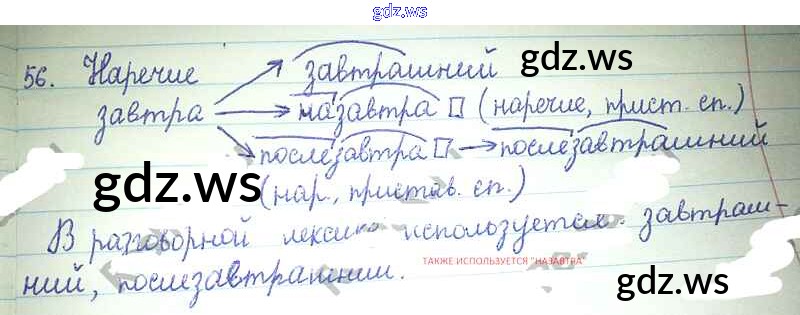 gdz.ws
56. Наречие завтрашний gdz.ws
завтра назавтра □ (наречие, прист. сп.)
послезавтра □ → послезавтрашний
gdz.ws (нар., пристав. сп.)
В разговорной лексике используется завтраш-
ТАКЖЕ ИСПОЛЬЗУЕТСЯ "НАЗАВТРА"
ний, послезавтрашний. gdz.ws